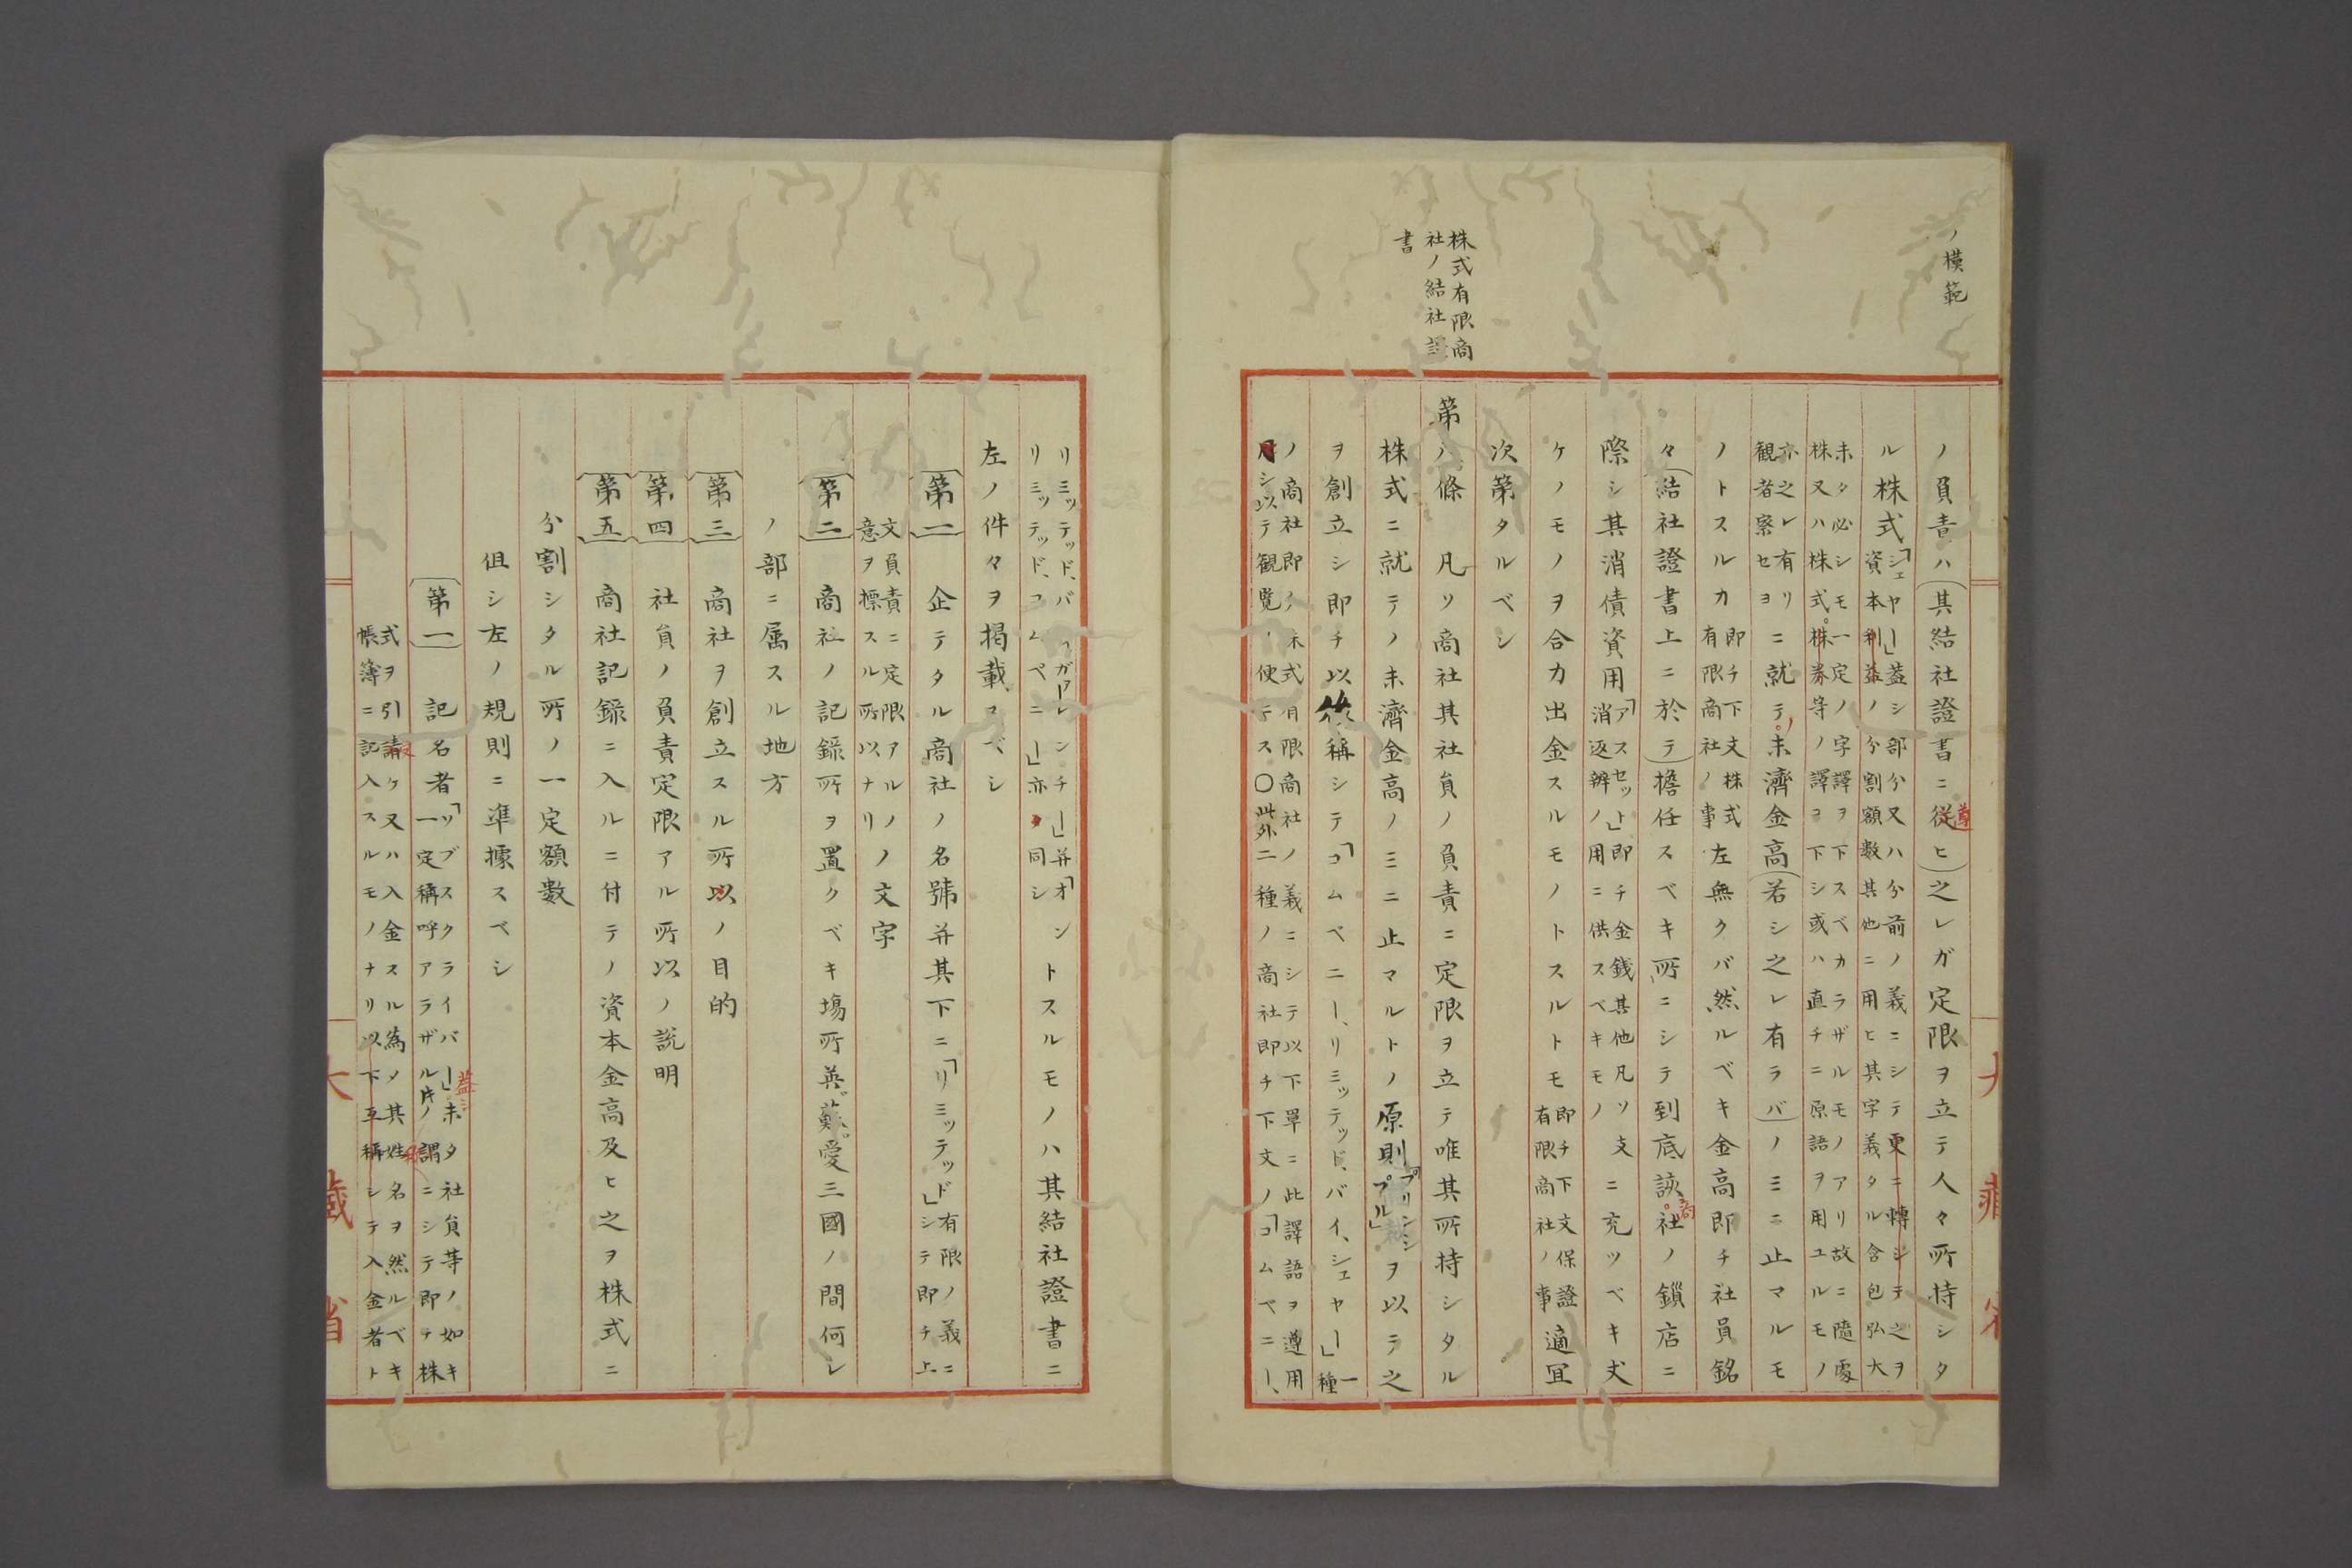 ノ模範
ノ負責ハ(其結社證書ニ従ヒ)之レガ定限ヲ立テ人々所持シタ
ル株式「シェヤー」蓋シ部分又ハ分前ノ義ニシテ更ニ轉シテ之ヲ
資本利益ノ分割額数其他ニ用ヒ其字義タル含包弘大
未タ必シモ一定ノ字譯ヲ下スベカラザルモノアリ故ニ隨處
株又ハ株式。株券等ノ譯ヲ下シ或ハ直チニ原語ヲ用ユルモノ
亦之レ有リ
観者察セヨニ就テ。未濟金高(若シ之レ有ラバ)ノミニ止マルモ
ノトスルカ即チ下文株式
有限商社ノ事左無クバ然ルベキ金高即チ社員銘
々(結社證書上ニ於テ)擔任スベキ所ニシテ到底該。社ノ鎖店ニ
商
際シ其消債資用「アスセット」即チ金錢其他凡ソ支
消返辨ノ用ニ供スベキモノニ充ツベキ丈
ケノモノヲ合力出金スルモノトスルトモ即チ下文保證
有限商社ノ事適宜
次第タルベシ
株式有限商
社ノ結社證
書
第八條 凡ソ商社其社員ノ負責ニ定限ヲ立テ唯其所持シタル
株式ニ就テノ未濟金高ノミニ止マルトノ原則「プリンシプル」ヲ以テ之
ヲ創立シ即チ以後稱シテ「コムペニー、リミッテッド、バイ、シェヤー」一種
ノ商社即ノ株式有限商社ノ義ニシテ以下單ニ此譯語ヲ遵用
シ以テ観覧ニ便テス〇此外二種ノ商社即チ下文ノ「コムペニー、
リミッテッド、バイ、ガァーレンチー」并「オントスルモノハ其結社證書ニ
リミッテッド、コムペニー」亦同シ
左ノ件々ヲ掲載スベシ
(第一) 企テタル商社ノ名號并其下ニ「リミッテッド」有限ノ義ニ
シテ即チ上
文負責ニ定限アルノ
意ヲ標スル所以ナリノ文字
(第二) 商社ノ記録所ヲ置クベキ場所英。蘇。愛三國ノ間何レ
ノ部ニ属スル地方
(第三) 商社ヲ創立スル所以ノ目的
(第四) 社員ノ負責定限アル所以ノ説明
(第五) 商社記録ニ入ルニ付テノ資本金高及ヒ之ヲ株式ニ
分割シタル所ノ一定額数
伹シ左ノ規則ニ準據スベシ
(第一) 記名者「ソブスクライバー」未タ社負等ノ如キ
一定稱呼アラザル片ノ謂ニシテ即テ株
蓋シ
式ヲ引請ケ又ハ入金スル為ノ其姓名ヲ然ルベキ
帳簿ニ記入スルモノナリ以下互稱シテ入金者ト
大藏省